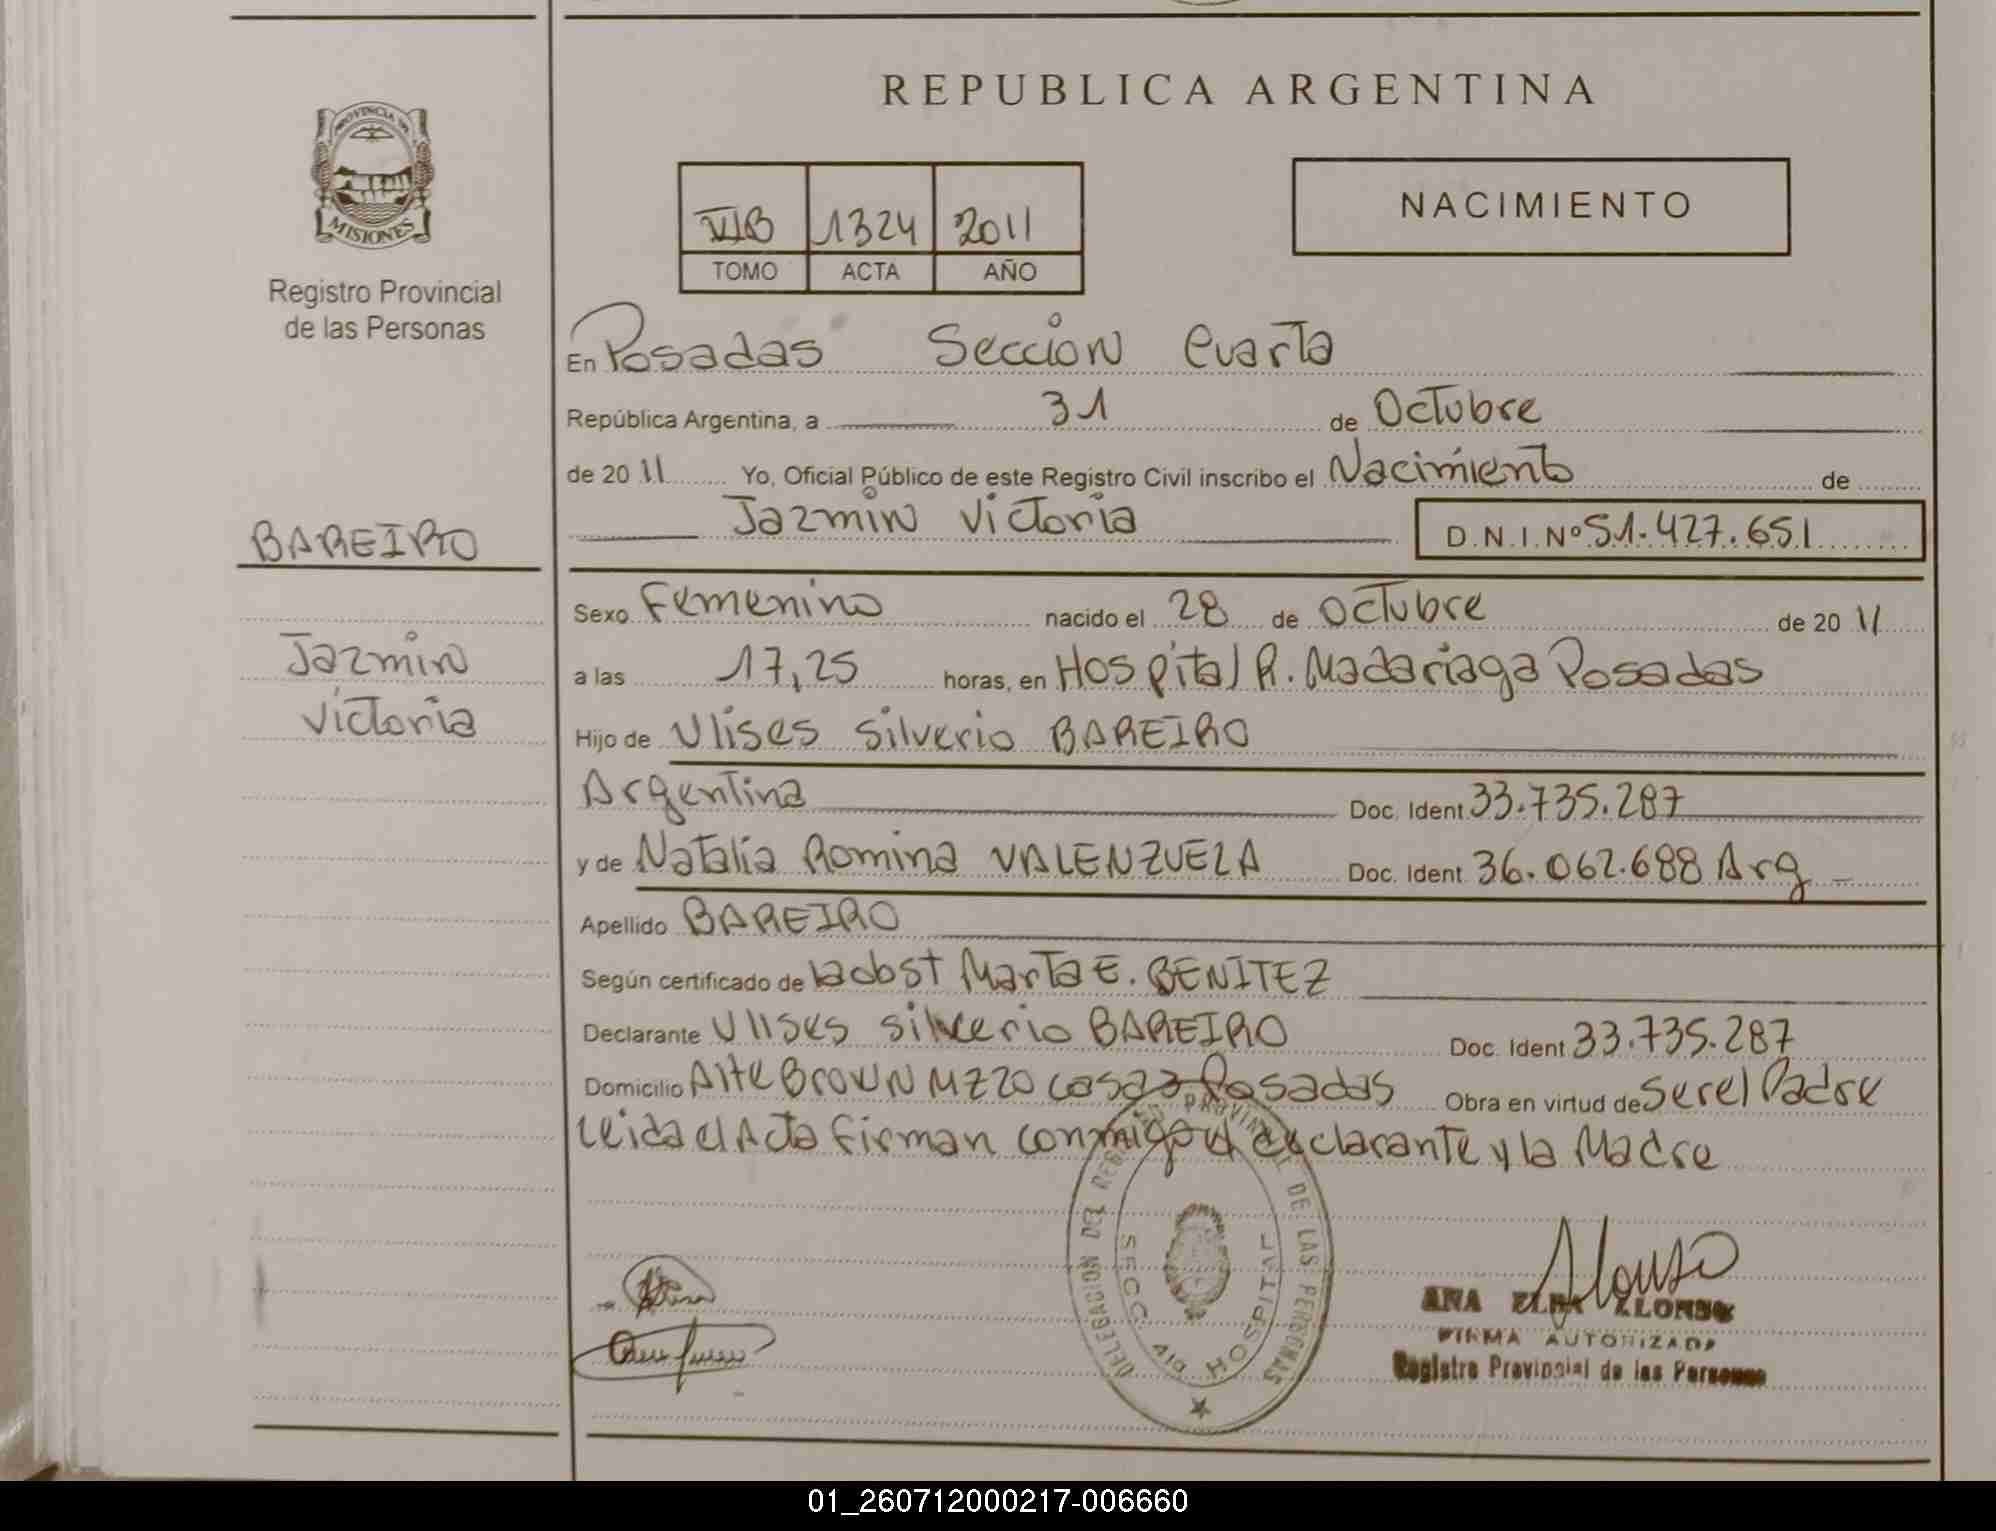 REPUBLICA ARGENTINA
PROVINCIA DE
MISIONES
Registro Provincial
de las Personas
VIB 1324 2011
TOMO ACTA AÑO
NACIMIENTO
En Posadas Sección Cuarta
República Argentina, a 31 de Octubre
de 20 11 Yo, Oficial Público de este Registro Civil inscribo el Nacimiento de
Jazmín Victoria D.N.I. Nº 51.427.651
BAREIRO
Jazmín
Victoria
Sexo Femenino nacido el 28 de Octubre de 20 11
a las 17,25 horas, en Hospital R. Madariaga Posadas
Hijo de Ulises Silverio BAREIRO
Argentina Doc. Ident. 33.735.287
y de Natalia Romina VALENZUELA Doc. Ident. 36.062.688 Arg
Apellido BAREIRO
Según certificado de la obst Marta E. BENITEZ
Declarante Ulises Silverio BAREIRO Doc. Ident 33.735.287
Domicilio Alte Brown MZ 20 casa 3 Posadas Obra en virtud de Ser el Padre
Leida el Acta firman conmigo el declarante y la Madre
DELEGACION DEL REGISTRO PROVINCIAL DE LAS PERSONAS
SECC. 4ta HOSPITAL
Alonso
ANA ELBA ALONSO
FIRMA AUTORIZADA
Registro Provincial de las Personas
01_260712000217-006660